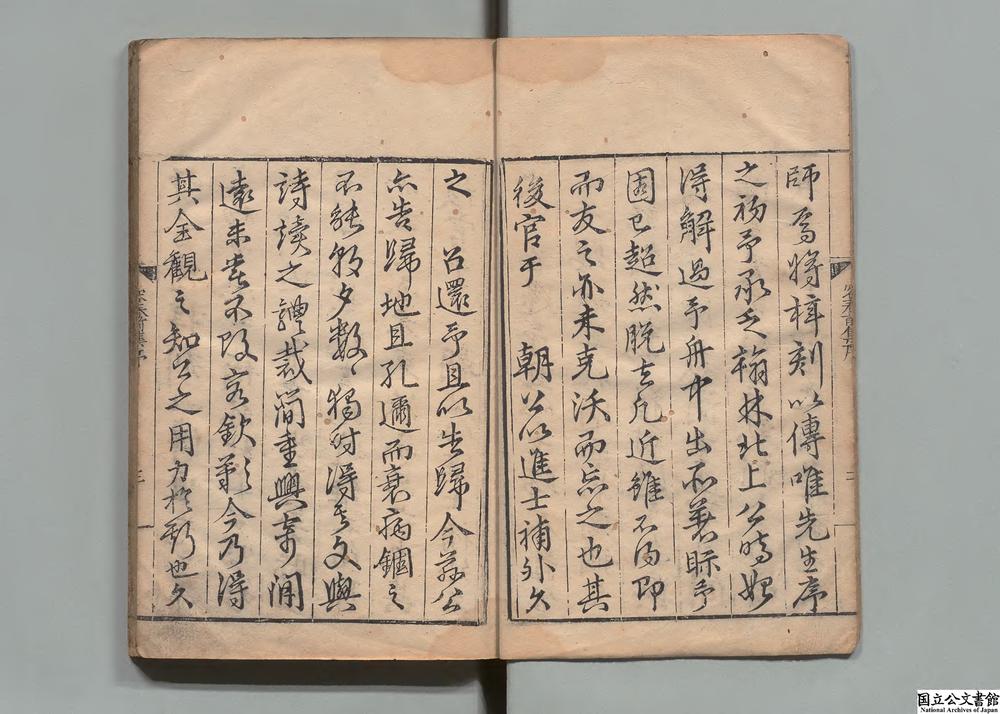 師焉將梓刻以傳唯先生序
之初予承乏翰林北上公時始
得解過予舟中出所著眎予
固已超然脫去凡近雖不得即
而友之亦未克沃而忘之也其
後官于　朝公以進士補外久
之　召還予且以告歸今茲公
亦告歸地且孔邇而衰病錮之
不能朝夕數〻獨時得其文與
詩讀之體裁簡重興寄閒
遠未嘗不改容歛今乃得
其全觀之知公之用力於斯也久
国立公文書館
National Archives of Japan